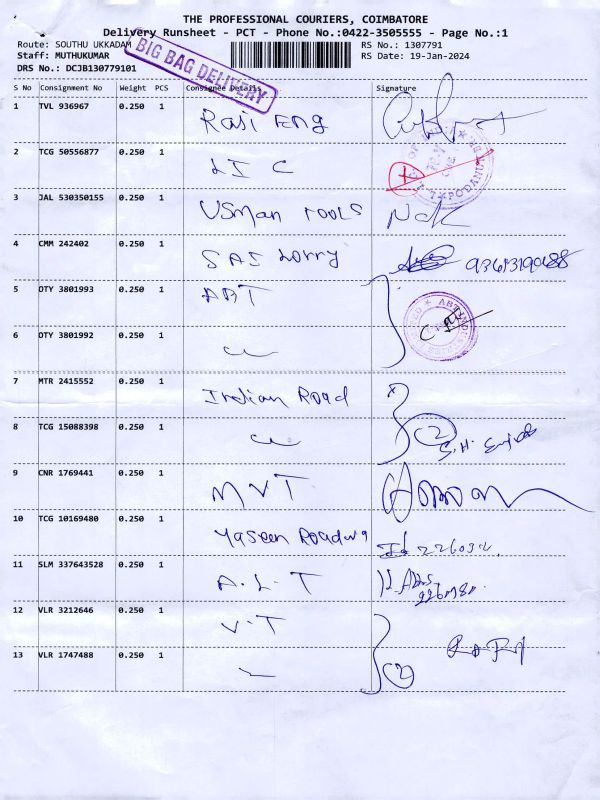 THE PROFESSIONAL COURIERS, COIMBATORE
Delivery Runsheet - PCT - Phone No.:0422-3505555 - Page No.:1
Route: SOUTHU UKKADAM
RS No.: 1307791
Staff: MUTHUKUMAR
RS Date: 19-Jan-2024
DRS No.: DCJB130779101
BIG BAG DELIVERY
S No Consignment No Weight PCS Consignee Details Signature
1 TVL 936967 0.250 1 Raji Eng
2 TCG 50556877 0.250 1 LIC
3 JAL 530350155 0.250 1 Usman Tools
4 CMM 242402 0.250 1 SAS Lorry
5 OTY 3801993 0.250 1 ABT
6 OTY 3801992 0.250 1
7 MTR 2415552 0.250 1 Indian Road
8 TCG 15088398 0.250 1 2
9 CNR 1769441 0.250 1 MVT
10 TCG 10169480 0.250 1 Yaseen
11 SLM 337643528 0.250 1 A.L.T
12 VLR 3212646 0.250 1 V.T
13 VLR 1747488 0.250 1 2